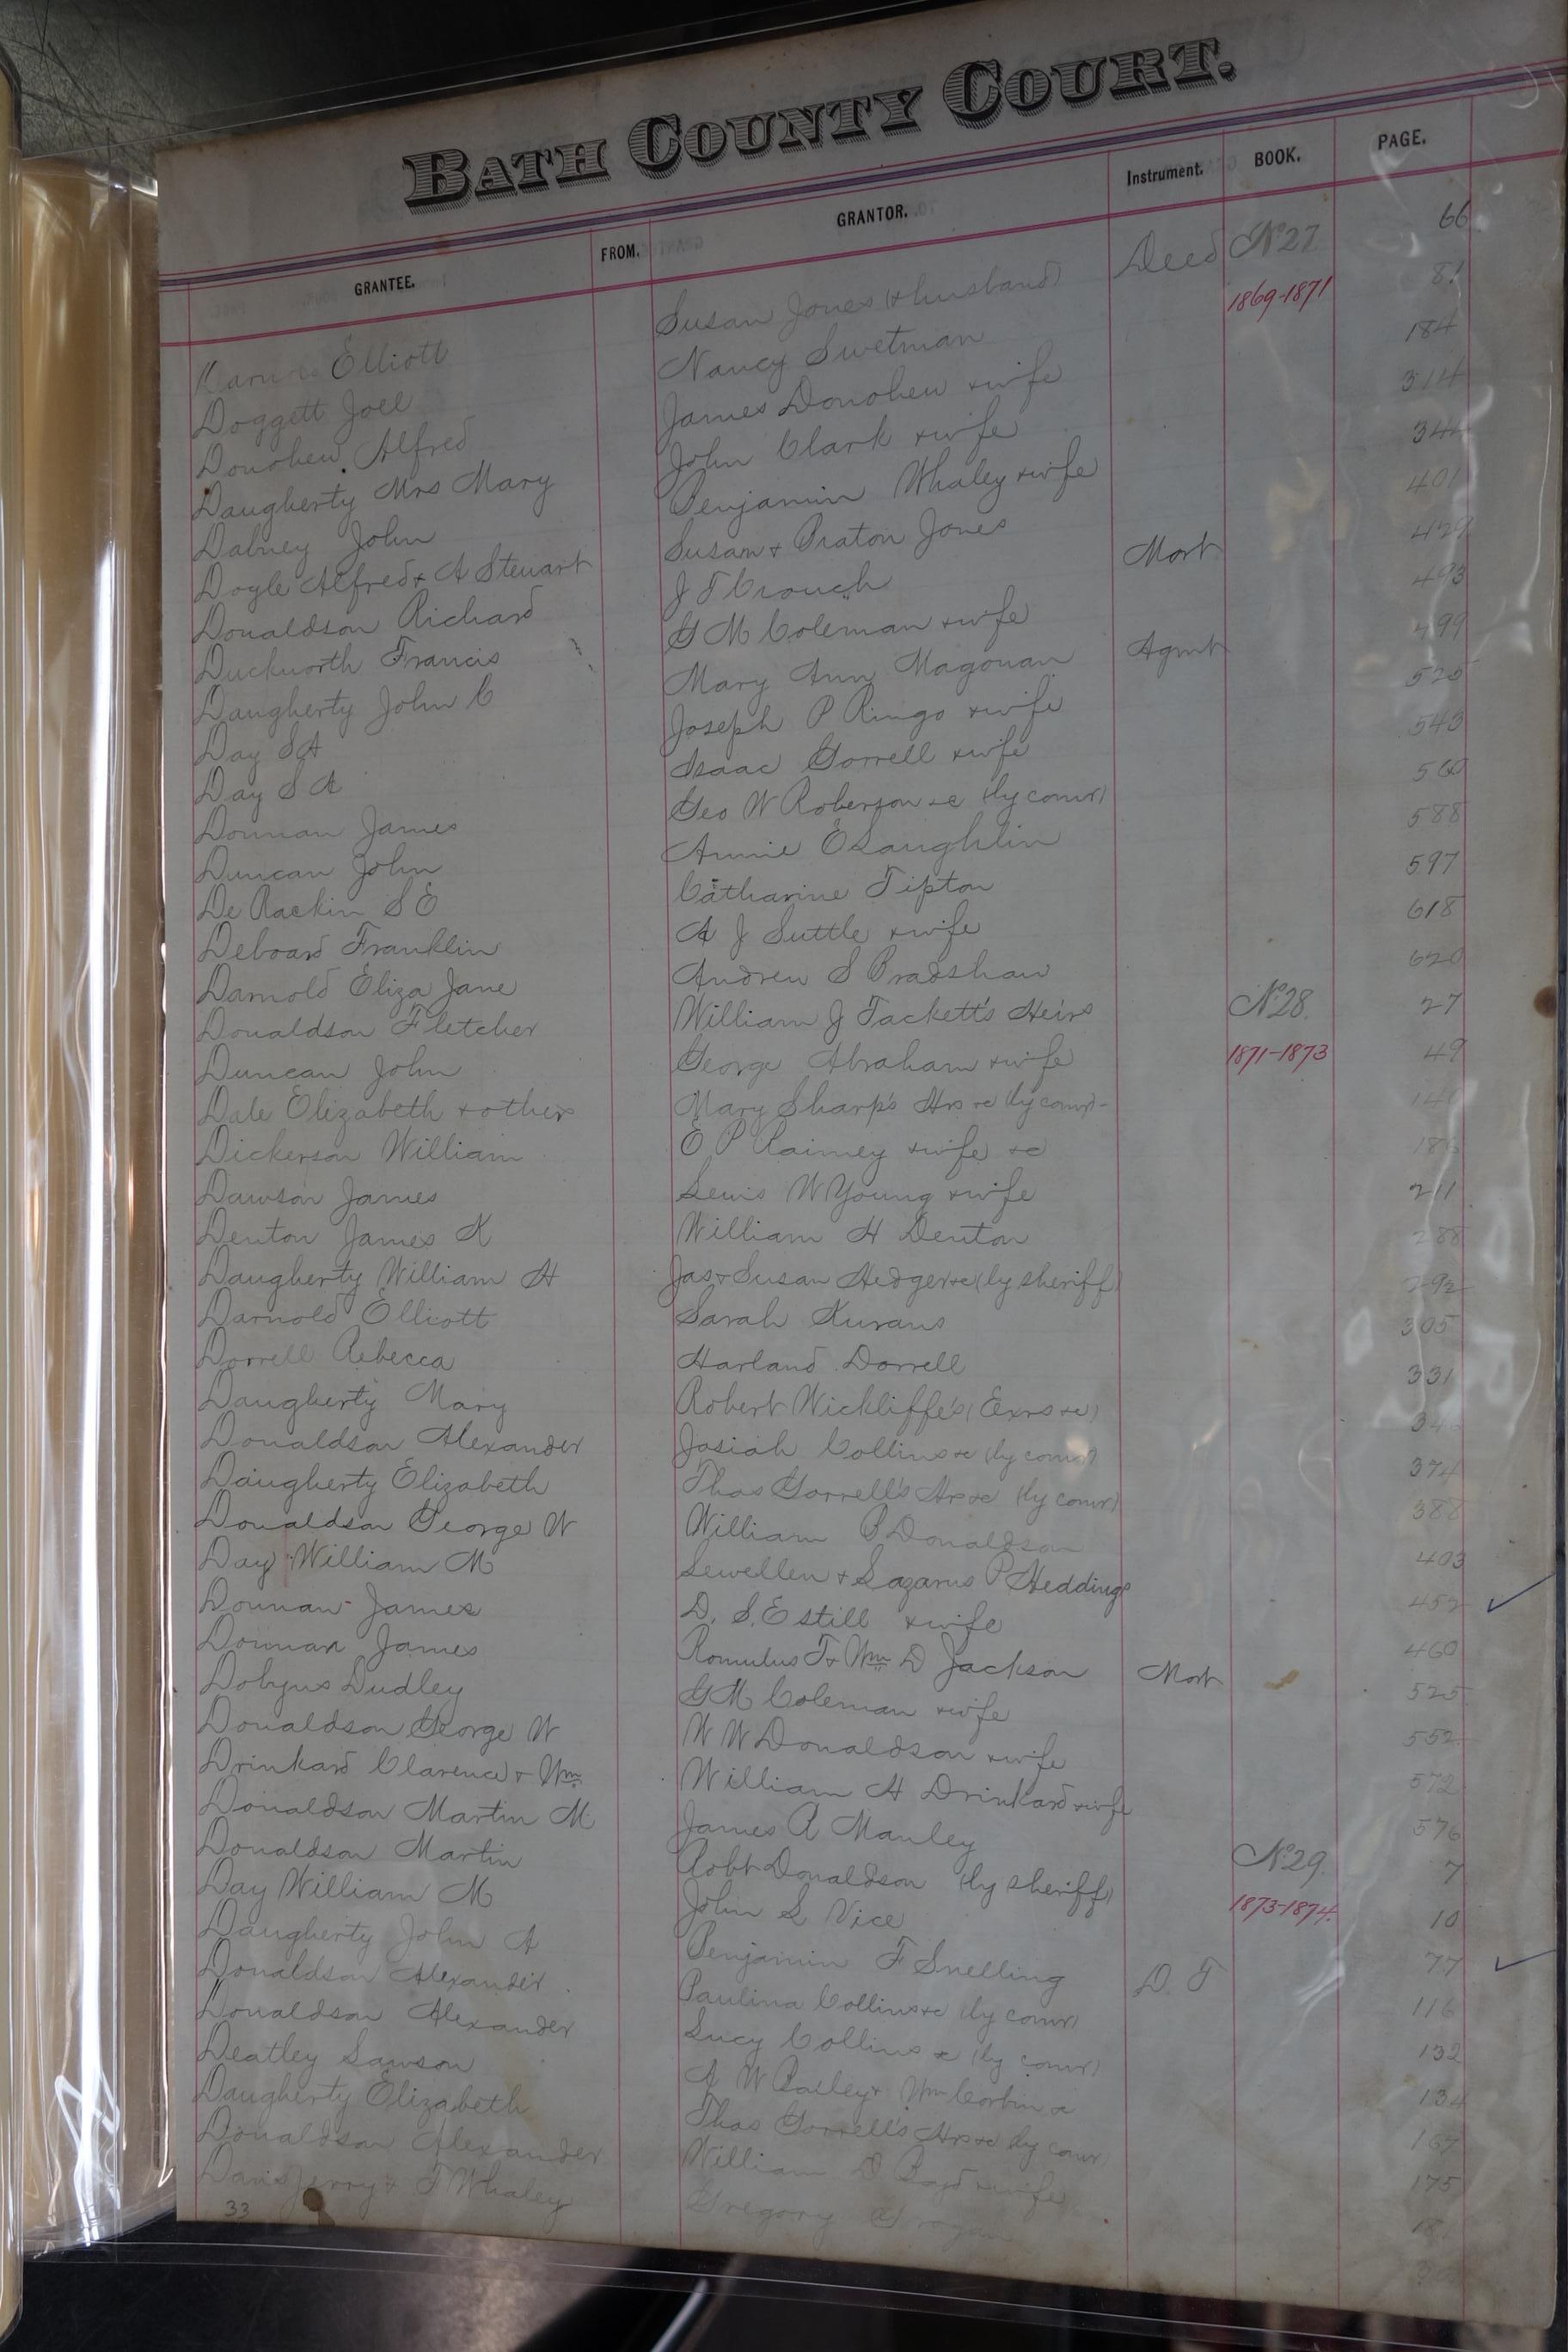 BATH COUNTY COURT.
GRANTEE. FROM. GRANTOR. Instrument. BOOK. PAGE.
Elliott Susan Jones (& husband) Deed No 27 66
Doggett Joel Nancy Swetman 1869-1871 81
Donohew Alfred James Donohew & wife 184
Daugherty Mrs Mary John Clark & wife 314
Dabney John Benjamin Whaley & wife 344
Dogle Alfred & A Stewart Susan & Braton Jones 401
Donaldson Richard J T Crouch Mort 429
Duckworth Francis G M Coleman & wife 493
Daugherty John C Mary Ann Magowan Agmt 499
Day S A Joseph P Ringo & wife 525
Day S A Isaac Gorrell & wife 543
Dorman James Geo W Roberson &c (by comr) 560
Duncan John Annie E Laughlin 588
De Rackin S E Catharine Tipton 597
Deboard Franklin A J Suttle & wife 618
Darnold Eliza Jane Andrew S Bradshaw 620
Donaldson Fletcher William J Tackett's Heirs No 28. 27
Duncan John George Abraham & wife 1871-1873 49
Dale Elizabeth & others Mary Sharp's Hrs &c (by comr)
Dickerson William E P Rainey & wife &c 186
Dawson James Lewis W Young & wife 211
Denton James K William H Denton 288
Daugherty William H Jas & Susan Hedger &c (by sheriff) 292
Darnold Elliott Sarah Kurans 305
Dorrell Rebecca Harland Dorrell 331
Daugherty Mary Robert Wickliffe's (Exrs &c)
Donaldson Alexander Josiah Collins &c (by comr) 374
Daugherty Elizabeth Thos Gorrell's Hrs &c (by comr) 388
Donaldson George W William P Donaldson 403
Day William M Lewellen & Lazarus P Heddings 452
Dorman James D. S. Estill & wife 460
Dorman James Romulus T & Wm D Jackson Mort 525
Dobyns Dudley G M Coleman & wife 552
Donaldson George W W W Donaldson & wife 572
Drinkard Clarence & Wm William H Drinkard & wife 576
Donaldson Martin M James A Manley No 29. 7
Donaldson Martin Robt Donaldson (by sheriff) 1873-1874. 10
Day William M John S Vice 77
Daugherty John A Benjamin F Snelling D. T 116
Donaldson Alexander Paulina Collins &c (by comr) 132
Donaldson Alexander Lucy Collins &c (by comr) 134
Deatley Lawson A W Bailey & Wm Corbin &c 167
Daugherty Elizabeth Thos Gorrell's Hrs &c (by comr) 175
Donaldson Alexander William D Boyd & wife
Davis Jerry & T Whaley Gregory
33